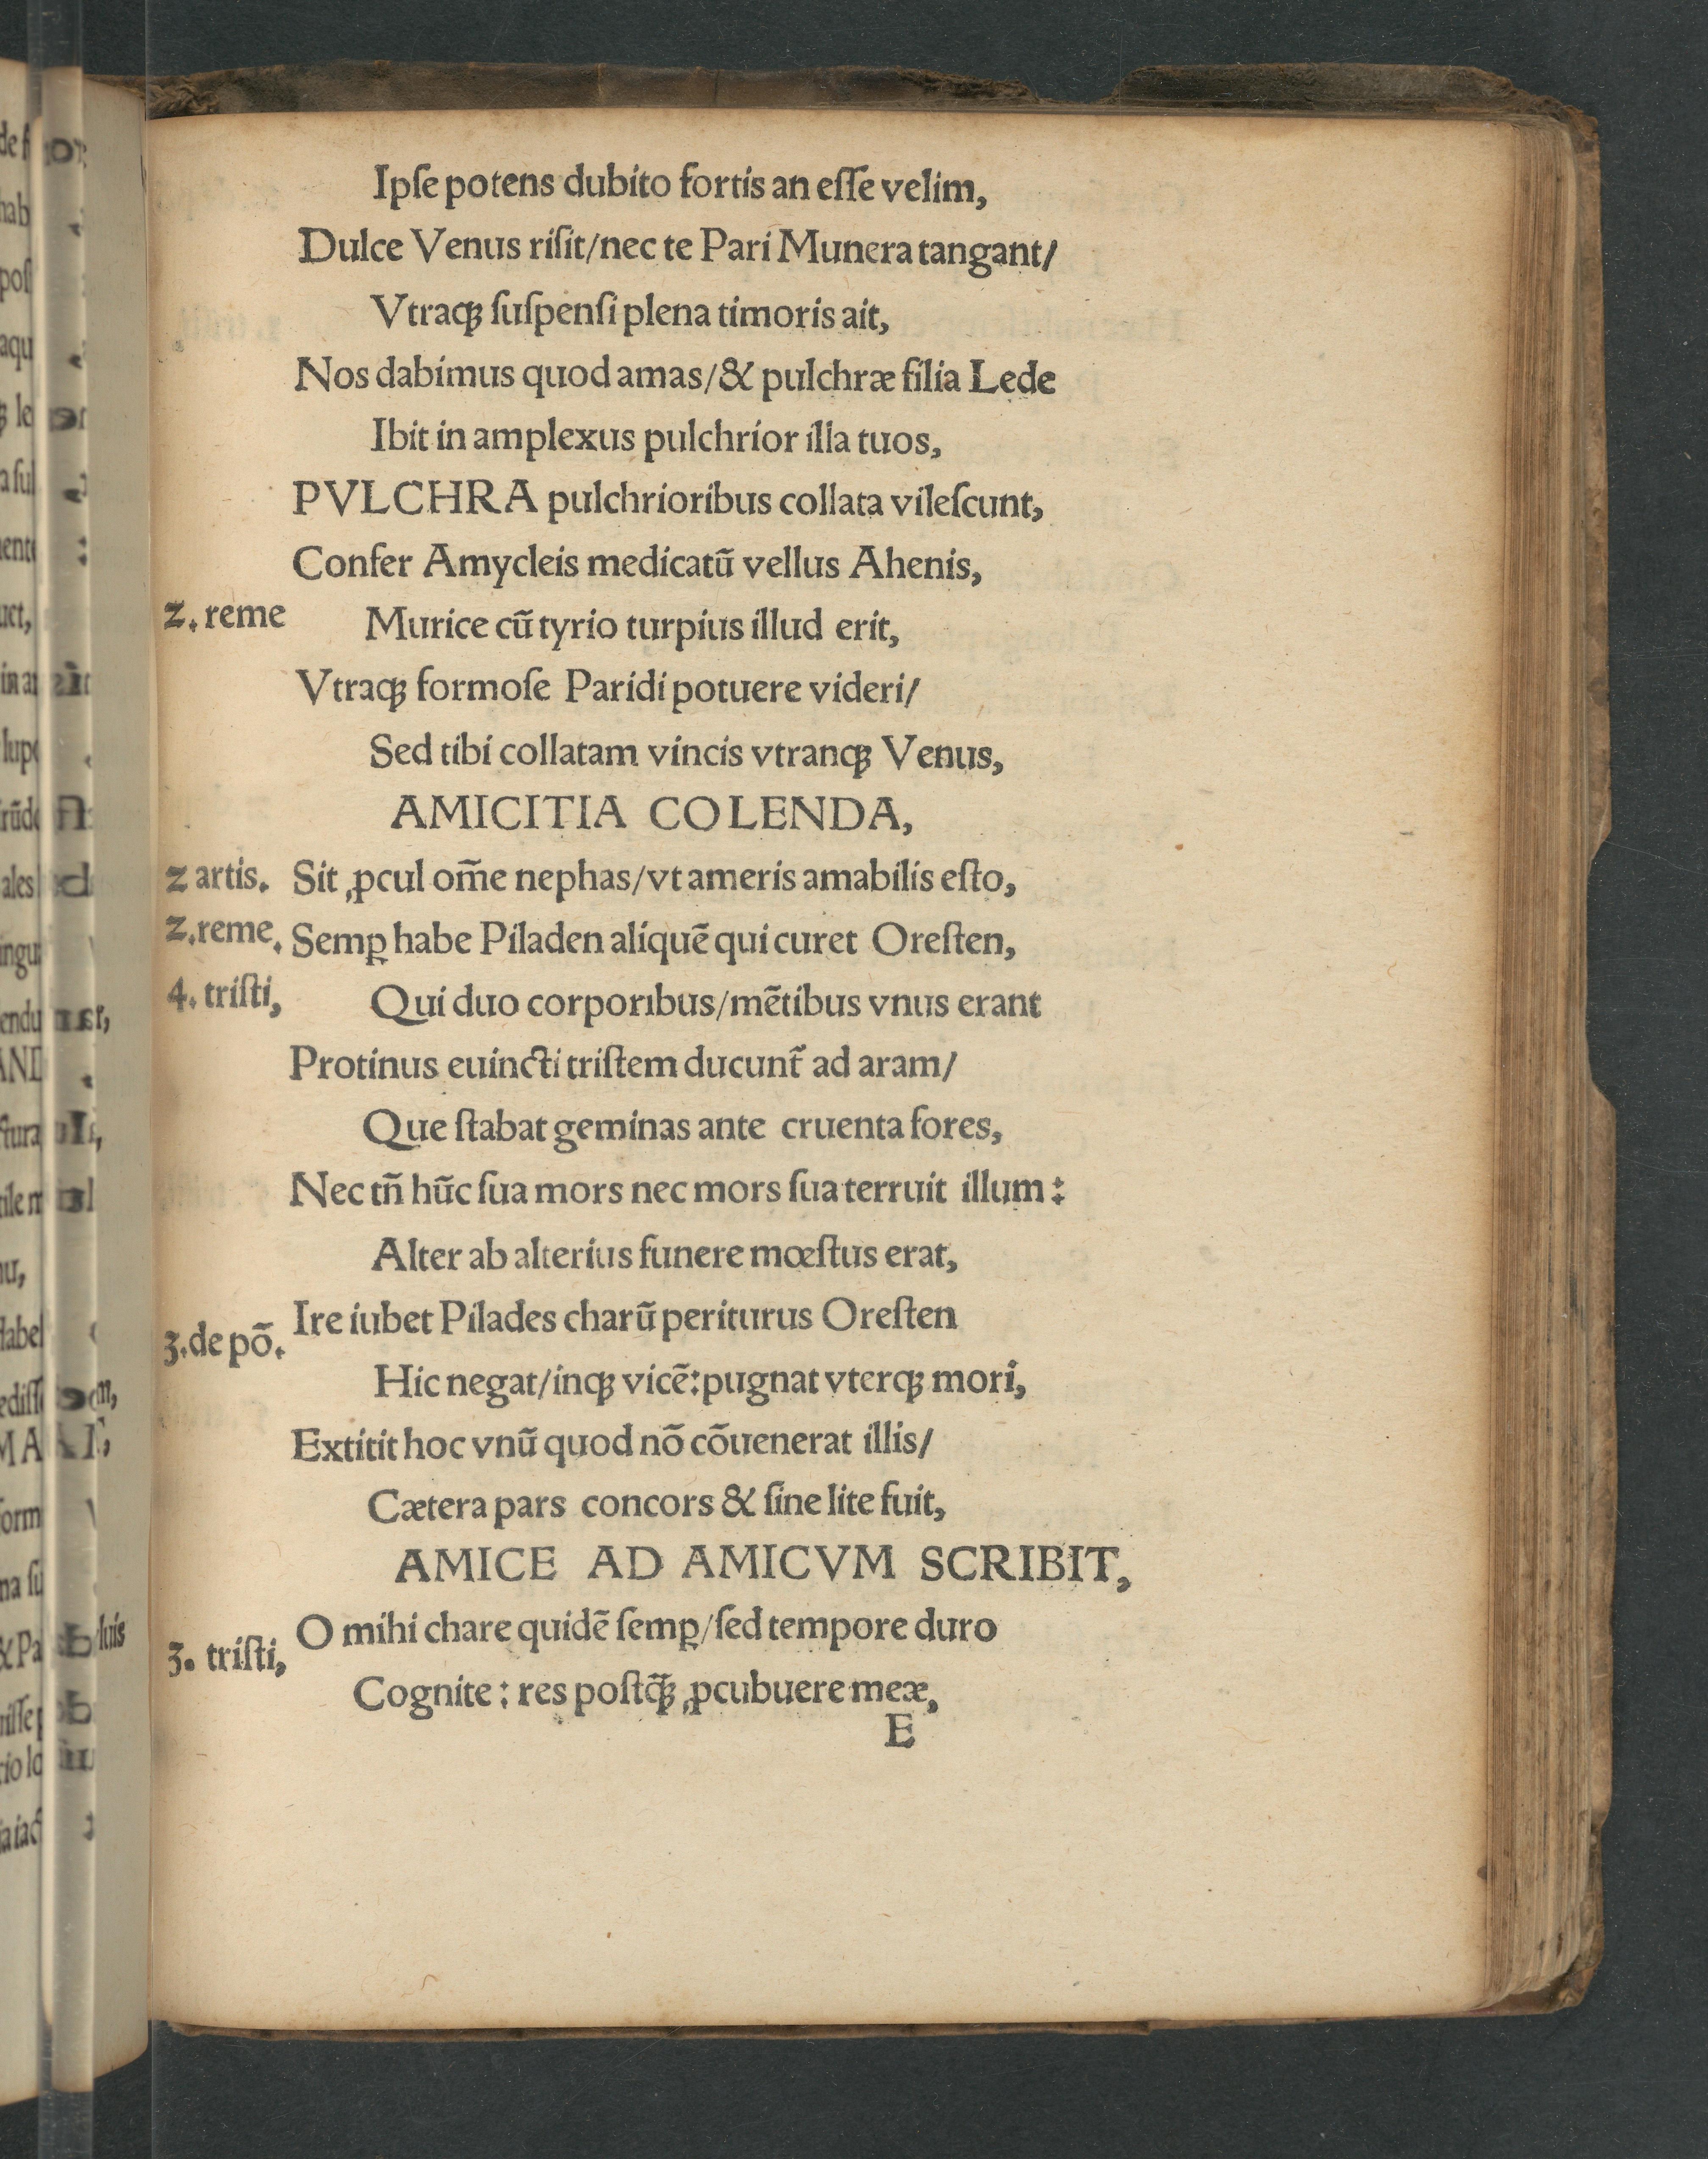 Ipſe potens dubito fortis an eſſe velim,
Dulce Venus riſit/nec te Pari Munera tangant/
Vtraqꝫ ſuſpenſi plena timoris ait,
Nos dabimus quod amas/& pulchræ filia Lede
Ibit in amplexus pulchrior illa tuos,
PVLCHRA pulchrioribus collata vileſcunt,
Confer Amycleis medicatū vellus Ahenis,
2. reme Murice cū tyrio turpius illud erit,
Vtraqꝫ formoſe Paridi potuere videri/
Sed tibi collatam vincis vtranqꝫ Venus,
AMICITIA COLENDA,
2 artis. Sit ꝓcul om̄e nephas/vt ameris amabilis eſto,
2.reme. Semꝑ habe Piladen aliquē qui curet Oreſten,
4. triſti, Qui duo corporibus/mētibus vnus erant
Protinus euincti triſtem ducunt᷑ ad aram/
Que ſtabat geminas ante cruenta fores,
Nec tn̄ hūc ſua mors nec mors ſua terruit illum:
Alter ab alterius funere mœſtus erat,
3.de pō. Ire iubet Pilades charū periturus Oreſten
Hic negat/inqꝫ vicē:pugnat vterqꝫ mori,
Extitit hoc vnū quod nō cōuenerat illis/
Cætera pars concors & ſine lite fuit,
AMICE AD AMICVM SCRIBIT,
3. triſti, O mihi chare quidē ſemꝑ/ſed tempore duro
Cognite: res poſtq̄ꝫ ꝓcubuere meæ,
E